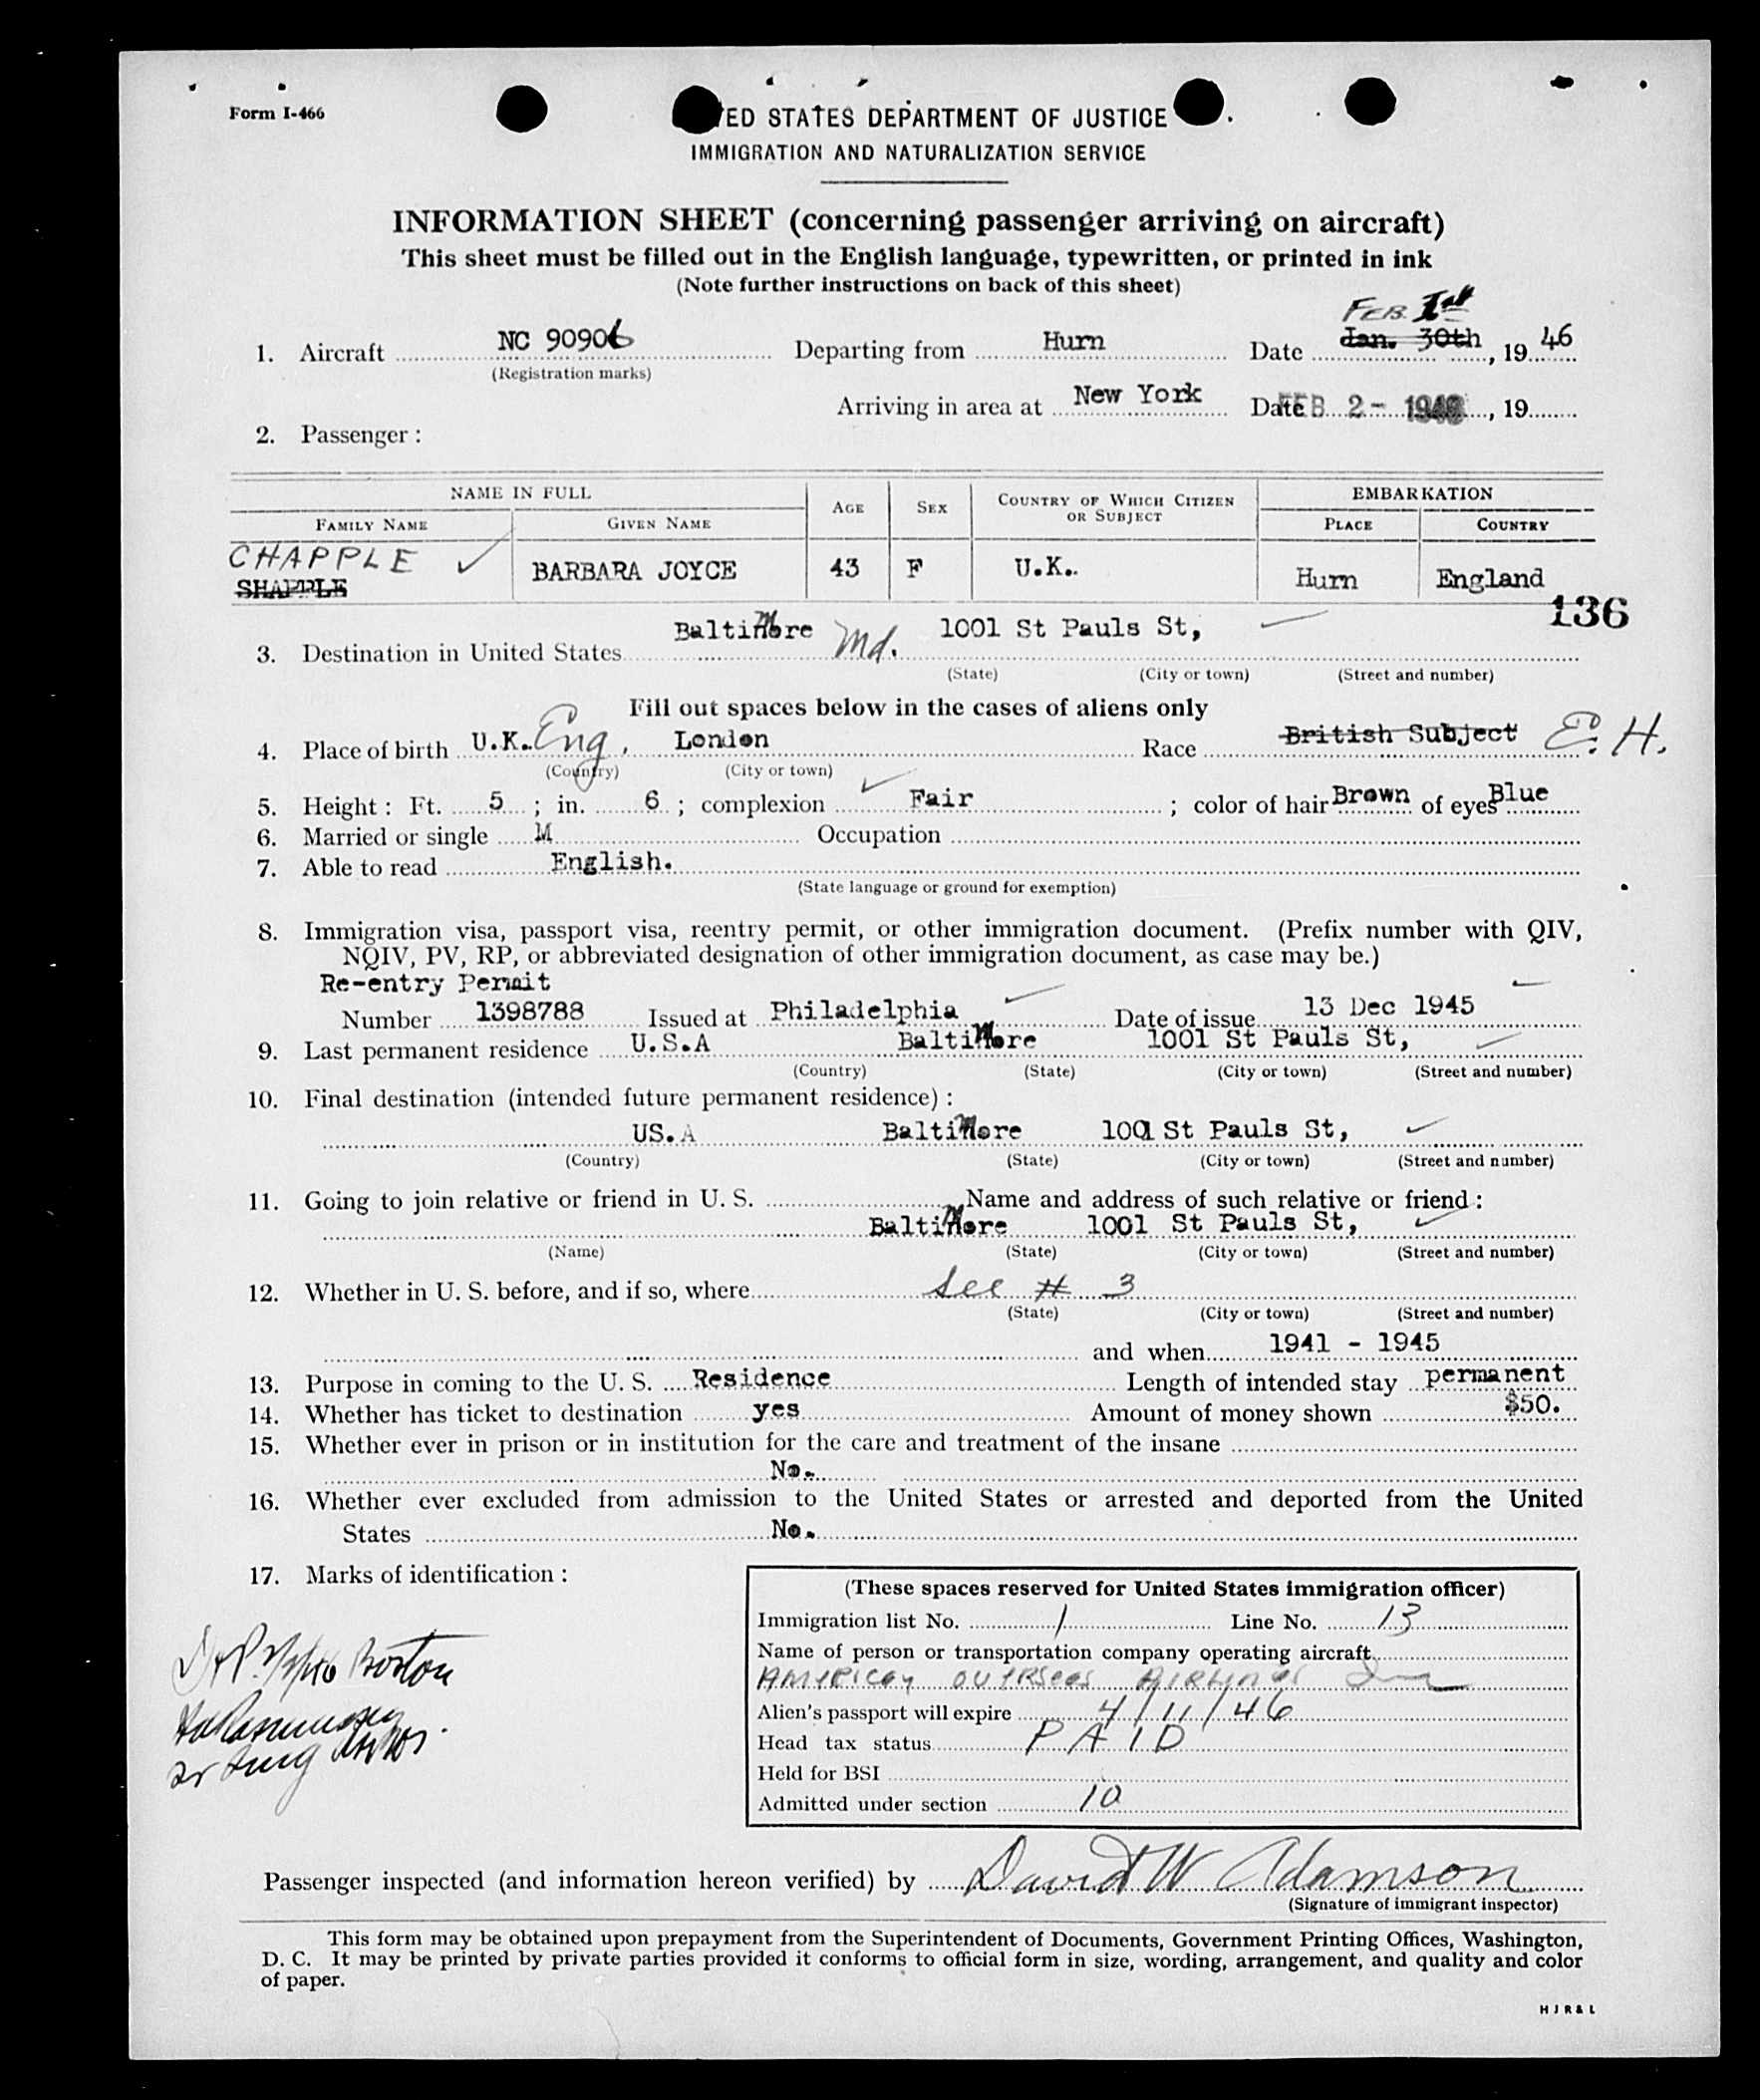 Form I-466
ED STATES DEPARTMENT OF JUSTICE
IMMIGRATION AND NATURALIZATION SERVICE
INFORMATION SHEET (concerning passenger arriving on aircraft)
This sheet must be filled out in the English language, typewritten, or printed in ink
(Note further instructions on back of this sheet)
FEB. 1st
1. Aircraft NC 90906 Departing from Hurn Date Jan. 30th, 1946
(Registration marks)
Arriving in area at New York Date FEB 2 - 1946, 19
2. Passenger :
NAME IN FULL AGE SEX COUNTRY OF WHICH CITIZEN OR SUBJECT EMBARKATION
FAMILY NAME GIVEN NAME PLACE COUNTRY
CHAPPLE BARBARA JOYCE 43 F U.K. Hurn England
SHAPPLE
136
3. Destination in United States Baltimore Md. 1001 St Pauls St,
(State) (City or town) (Street and number)
Fill out spaces below in the cases of aliens only
4. Place of birth U.K. Eng, London Race British Subject E. H.
(Country) (City or town)
5. Height : Ft. 5 ; in. 6 ; complexion Fair ; color of hair Brown of eyes Blue
6. Married or single M Occupation
7. Able to read English.
(State language or ground for exemption)
8. Immigration visa, passport visa, reentry permit, or other immigration document. (Prefix number with QIV,
NQIV, PV, RP, or abbreviated designation of other immigration document, as case may be.)
Re-entry Permit
Number 1398788 Issued at Philadelphia Date of issue 13 Dec 1945
9. Last permanent residence U.S.A Baltimore 1001 St Pauls St,
(Country) (State) (City or town) (Street and number)
10. Final destination (intended future permanent residence) :
US.A Baltimore 1001 St Pauls St,
(Country) (State) (City or town) (Street and number)
11. Going to join relative or friend in U. S. Name and address of such relative or friend :
Baltimore 1001 St Pauls St,
(Name) (State) (City or town) (Street and number)
12. Whether in U. S. before, and if so, where See # 3
(State) (City or town) (Street and number)
and when 1941 - 1945
13. Purpose in coming to the U. S. Residence Length of intended stay permanent
14. Whether has ticket to destination yes Amount of money shown $50.
15. Whether ever in prison or in institution for the care and treatment of the insane
No.
16. Whether ever excluded from admission to the United States or arrested and deported from the United
States No.
17. Marks of identification :
Boston
(These spaces reserved for United States immigration officer)
Immigration list No. 1 Line No. 13
Name of person or transportation company operating aircraft
American Overseas Airlines
Alien's passport will expire 4/11/46
Head tax status PAID
Held for BSI
Admitted under section 10
Passenger inspected (and information hereon verified) by David W Adamson
(Signature of immigrant inspector)
This form may be obtained upon prepayment from the Superintendent of Documents, Government Printing Offices, Washington,
D. C. It may be printed by private parties provided it conforms to official form in size, wording, arrangement, and quality and color
of paper.
H J R & L